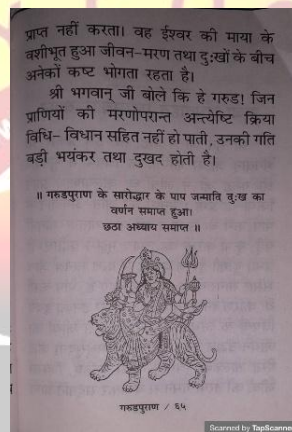 प्राप्त नहीं करता। वह ईश्वर की माया के
वशीभूत हुआ जीवन-मरण तथा दुःखों के बीच
अनेकों कष्ट भोगता रहता है।
श्री भगवान् जी बोले कि हे गरुड! जिन
प्राणियों की मरणोपरान्त अन्त्येष्टि क्रिया
विधि- विधान सहित नहीं हो पाती, उनकी गति
बड़ी भयंकर तथा दुखद होती है।
॥ गरुडपुराण के सारोद्धार के पाप जन्मादि दुःख का
वर्णन समाप्त हुआ।
छठा अध्याय समाप्त ॥
गरुडपुराण / ६५
Scanned by TapScanner